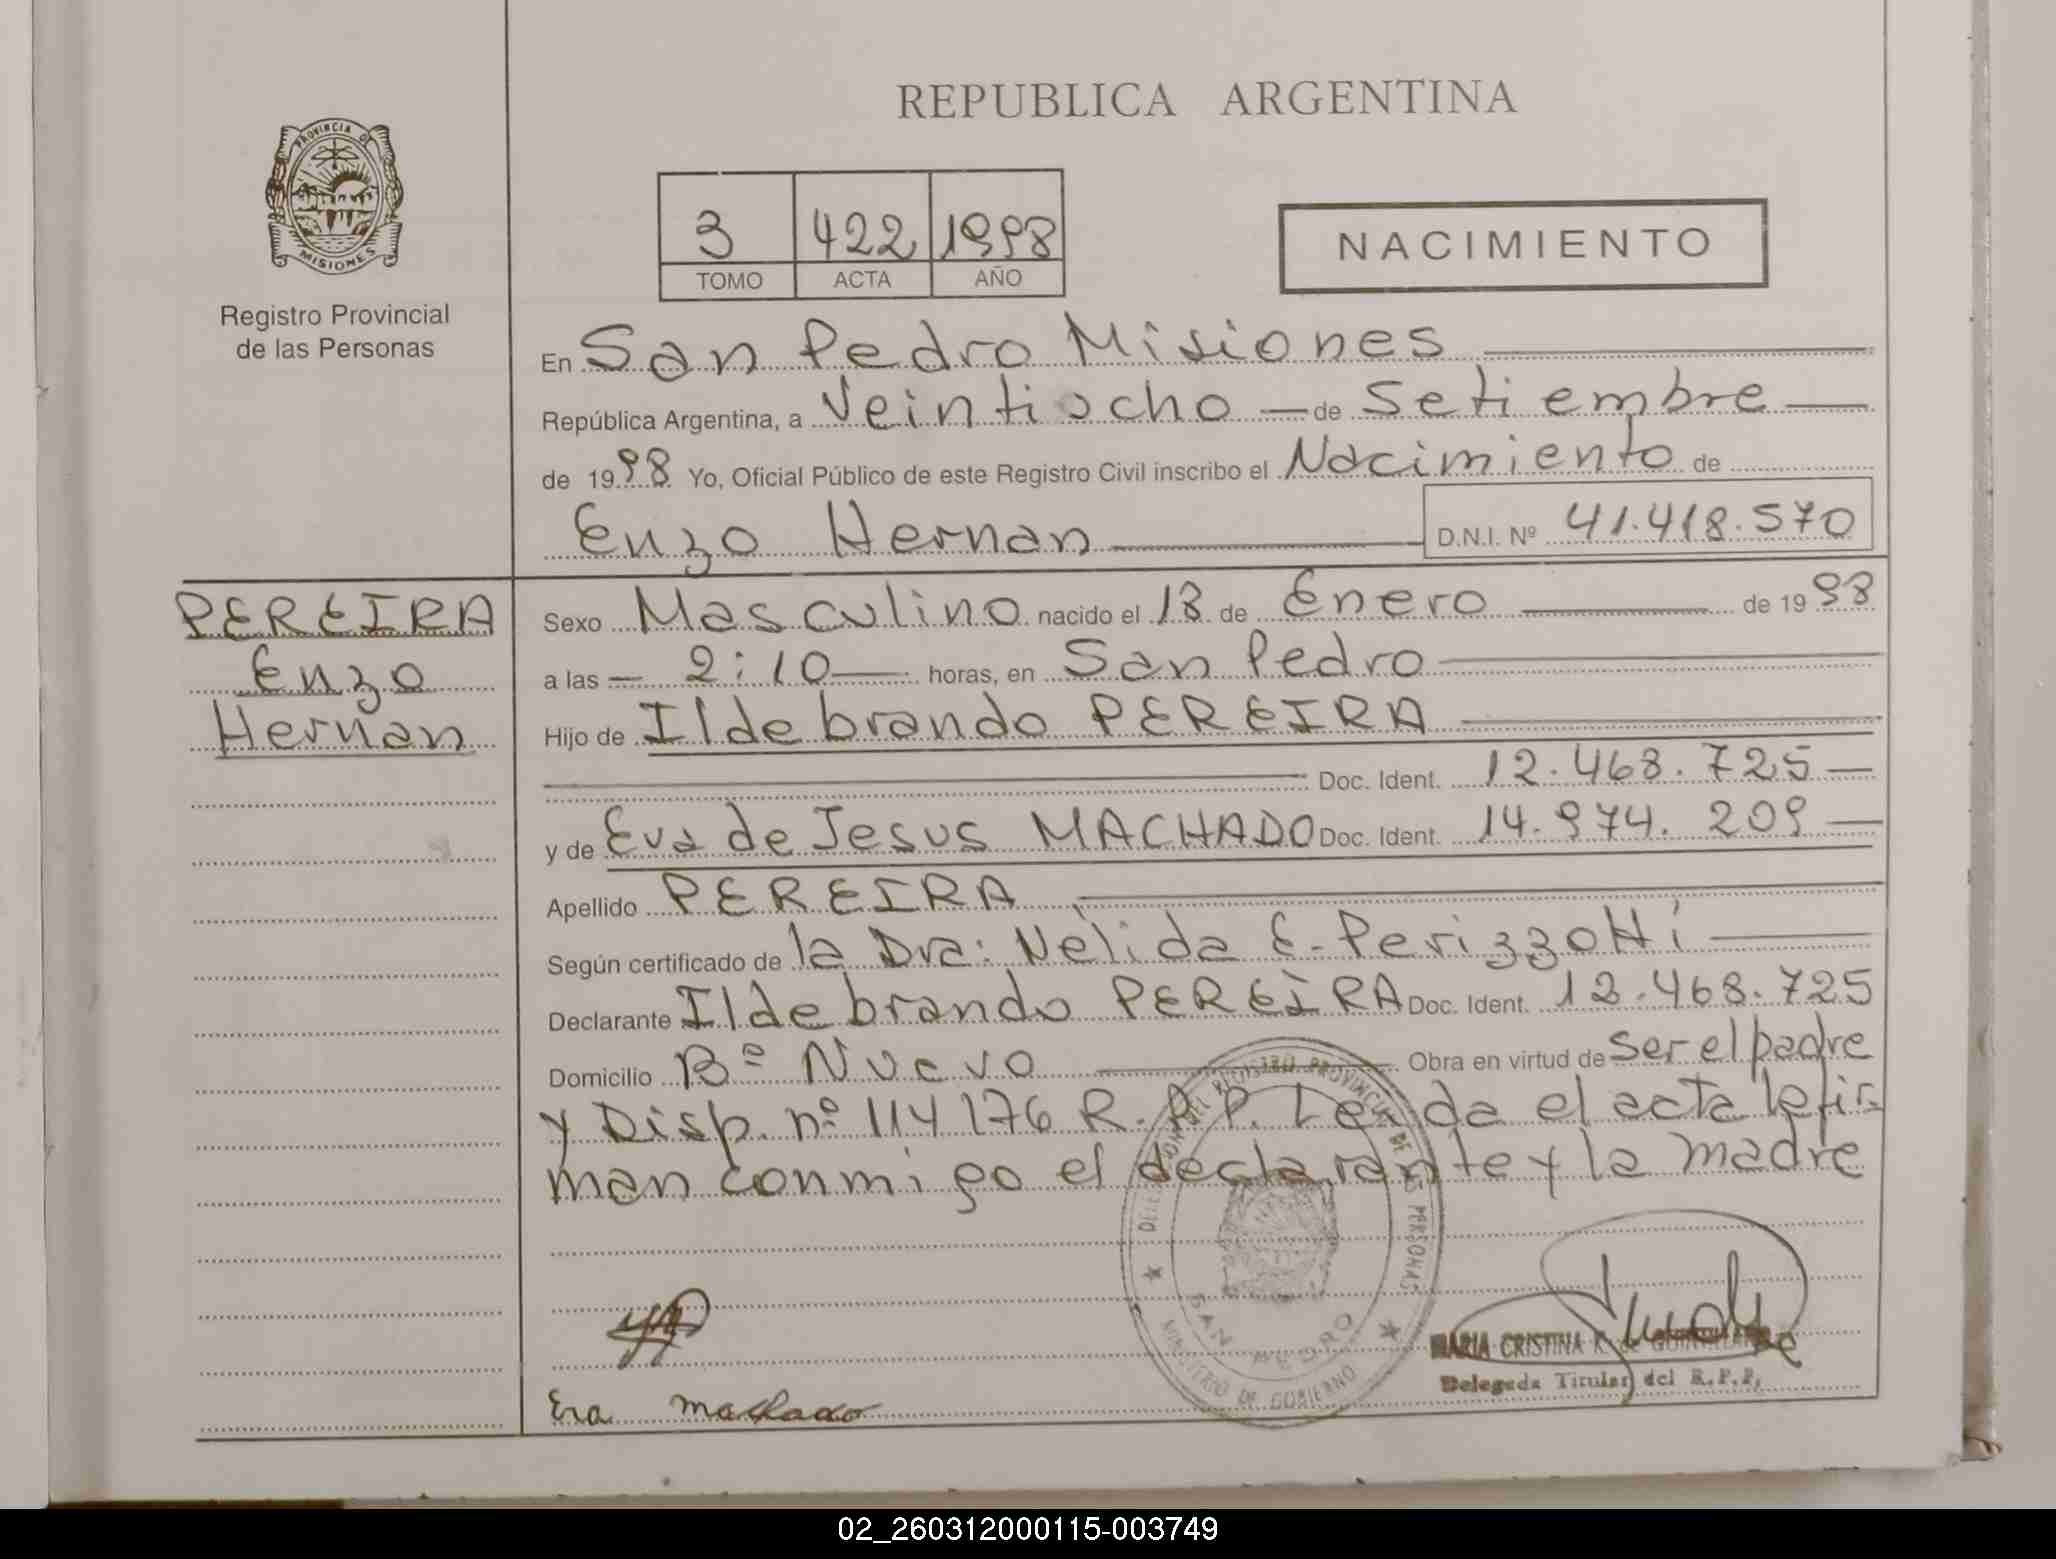 REPUBLICA ARGENTINA
PROVINCIA DE MISIONES
Registro Provincial
de las Personas
3 422 1998
TOMO ACTA AÑO
NACIMIENTO
En San Pedro Misiones
República Argentina, a Veintiocho de Setiembre
de 1998 Yo, Oficial Público de este Registro Civil inscribo el Nacimiento de
Enzo Hernan D.N.I. Nº 41.418.570
PEREIRA
Enzo
Hernan
Sexo Masculino nacido el 13 de Enero de 1998
a las 2:10 horas, en San Pedro
Hijo de Ildebrando PEREIRA
Doc. Ident. 12.468.725
y de Eva de Jesus MACHADO Doc. Ident. 14.974.209
Apellido PEREIRA
Según certificado de la Dra: Nelida E. Perizzotti
Declarante Ildebrando PEREIRA Doc. Ident. 12.468.725
Domicilio Bº Nuevo Obra en virtud de ser el padre
y Disp. nº 114176 R.P.P. Leida el acta la fir-
man conmigo el declarante y la madre
DELEGACION DEL REGISTRO PROVINCIAL DE LAS PERSONAS
SAN PEDRO
MINISTERIO DE GOBIERNO
MARIA CRISTINA K. de
Delegada Titular del R.P.P.
Eva machado
02_260312000115-003749